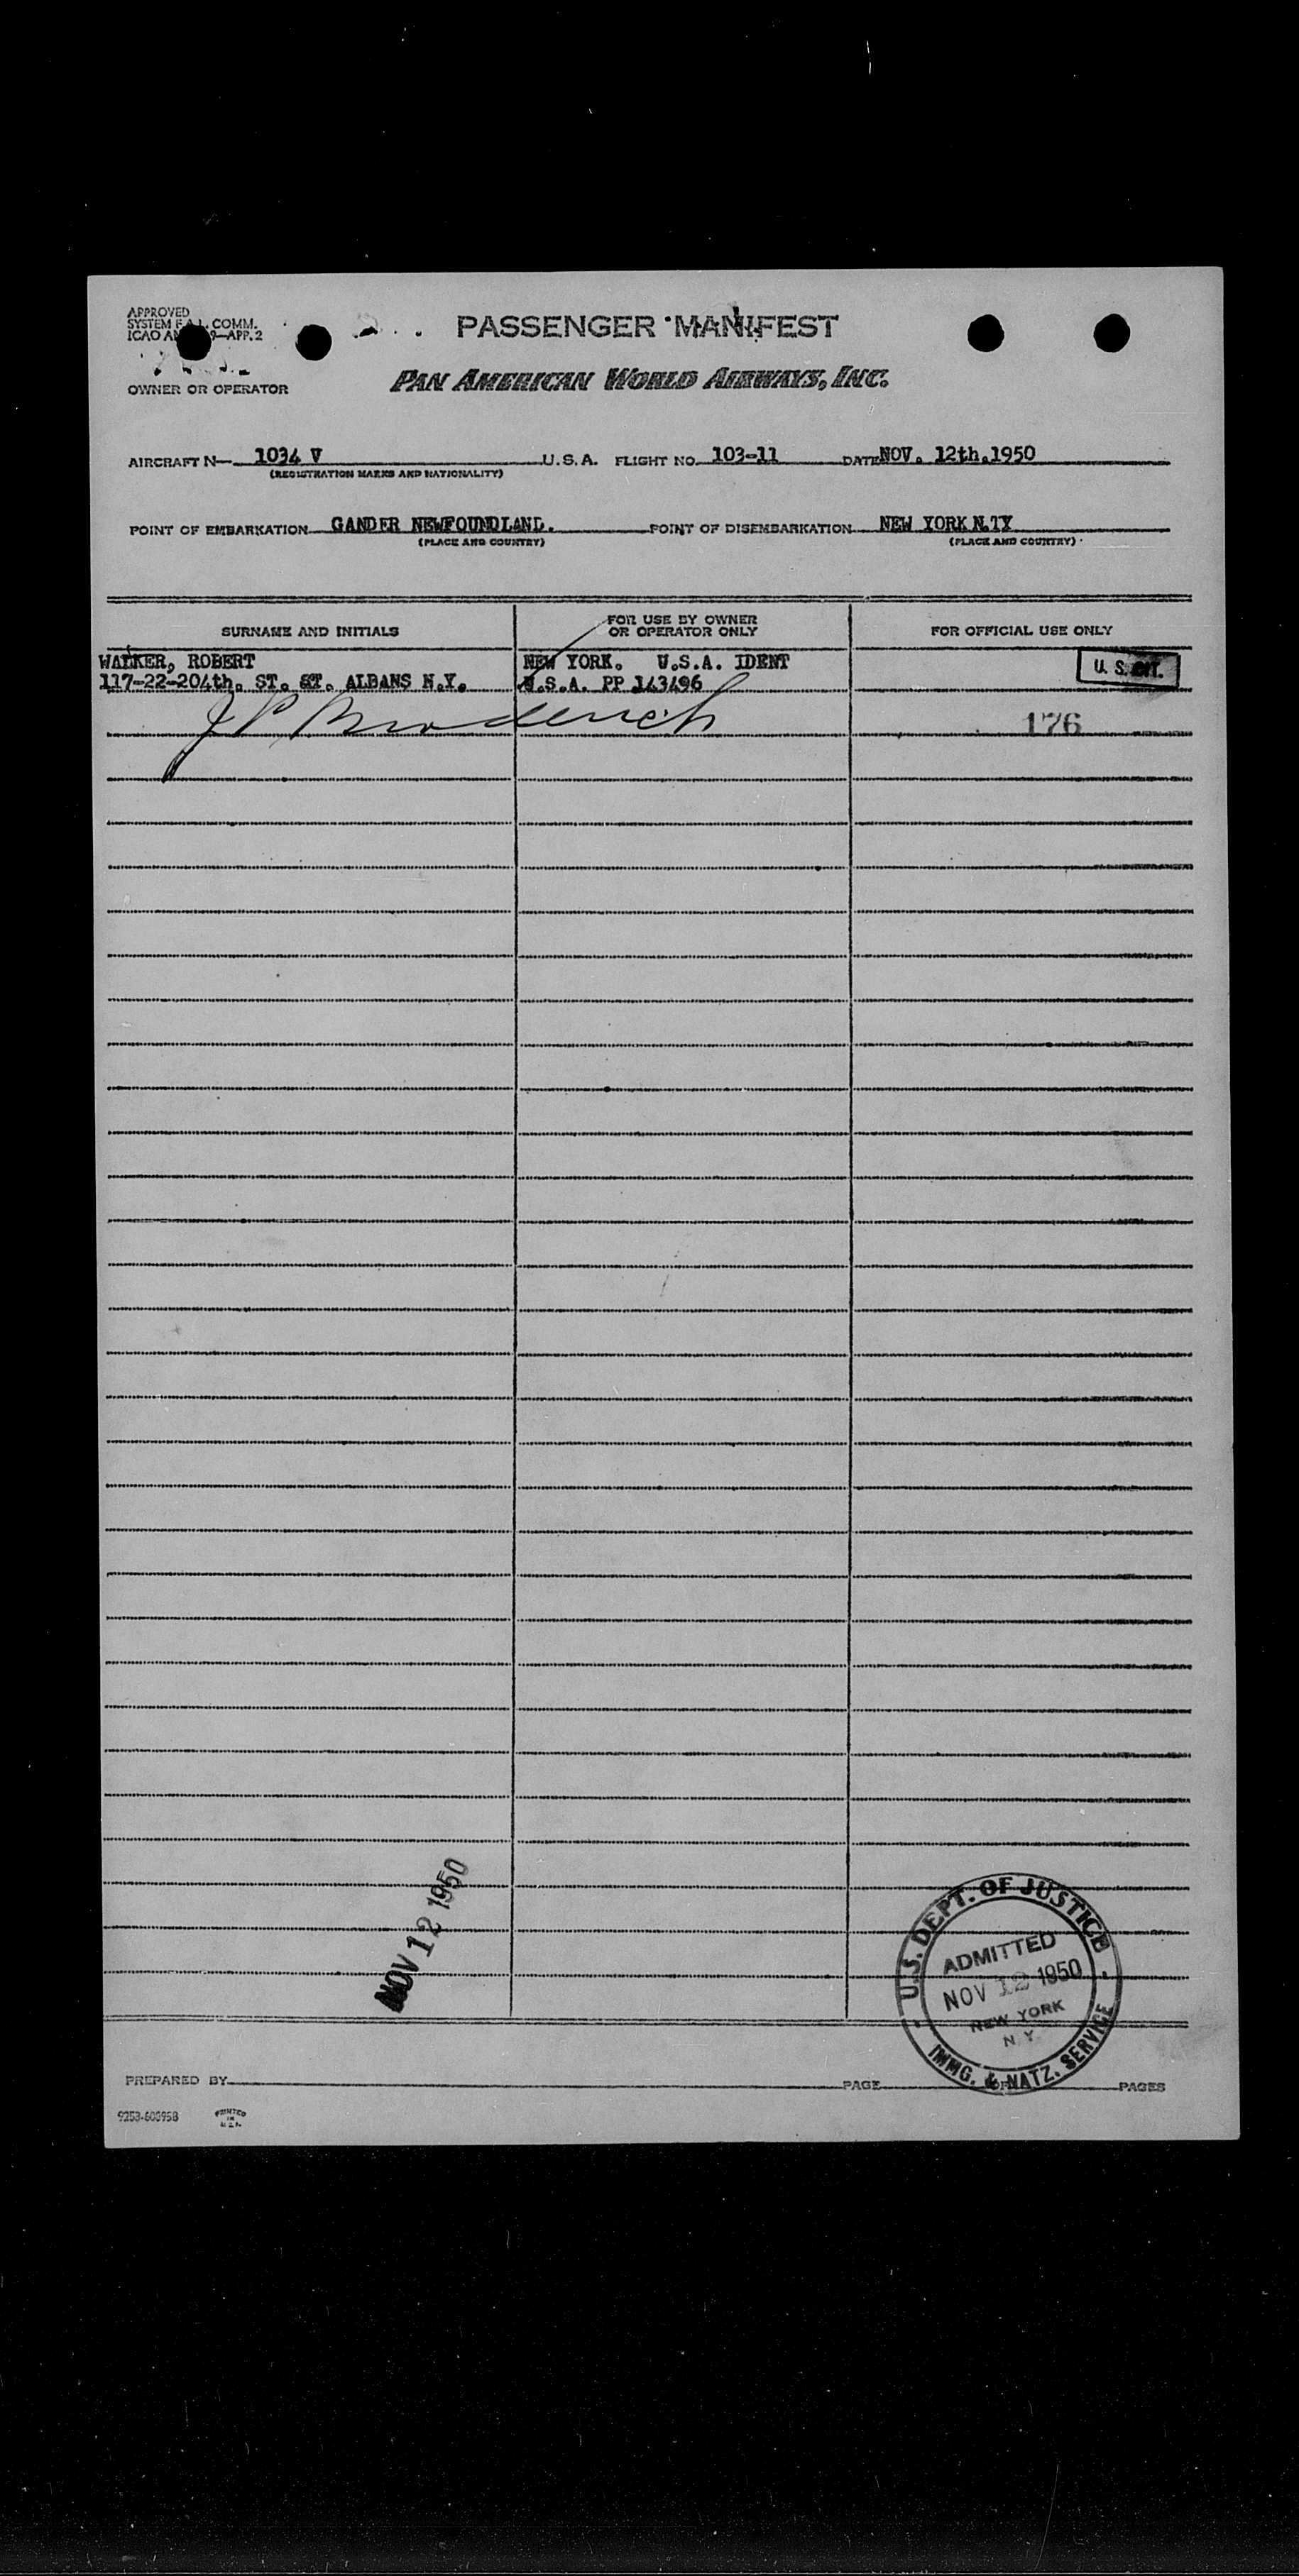 APPROVED
SYSTEM F.A.L. COMM.
ICAO AN 9-APP. 2
PASSENGER MANIFEST
OWNER OR OPERATOR
PAN AMERICAN WORLD AIRWAYS, INC.
AIRCRAFT N- 1034 V U.S.A. FLIGHT NO. 103-11 DATE NOV. 12th.1950
(REGISTRATION MARKS AND NATIONALITY)
POINT OF EMBARKATION GANDER NEWFOUNDLAND. POINT OF DISEMBARKATION NEW YORK N.YY
(PLACE AND COUNTRY) (PLACE AND COUNTRY)
SURNAME AND INITIALS FOR USE BY OWNER OR OPERATOR ONLY FOR OFFICIAL USE ONLY
WALKER, ROBERT NEW YORK. U.S.A. IDENT U. S. CIT.
117-22-204th. ST. ST. ALBANS N.Y. U.S.A. PP 143496
J P Broderick 176
NOV 12 1950
U.S. DEPT. OF JUSTICE
ADMITTED
NOV 12 1950
NEW YORK
N.Y.
IMMG. & NATZ. SERVICE
PREPARED BY PAGE OF PAGES
9253-605958 PRINTED IN U.S.A.